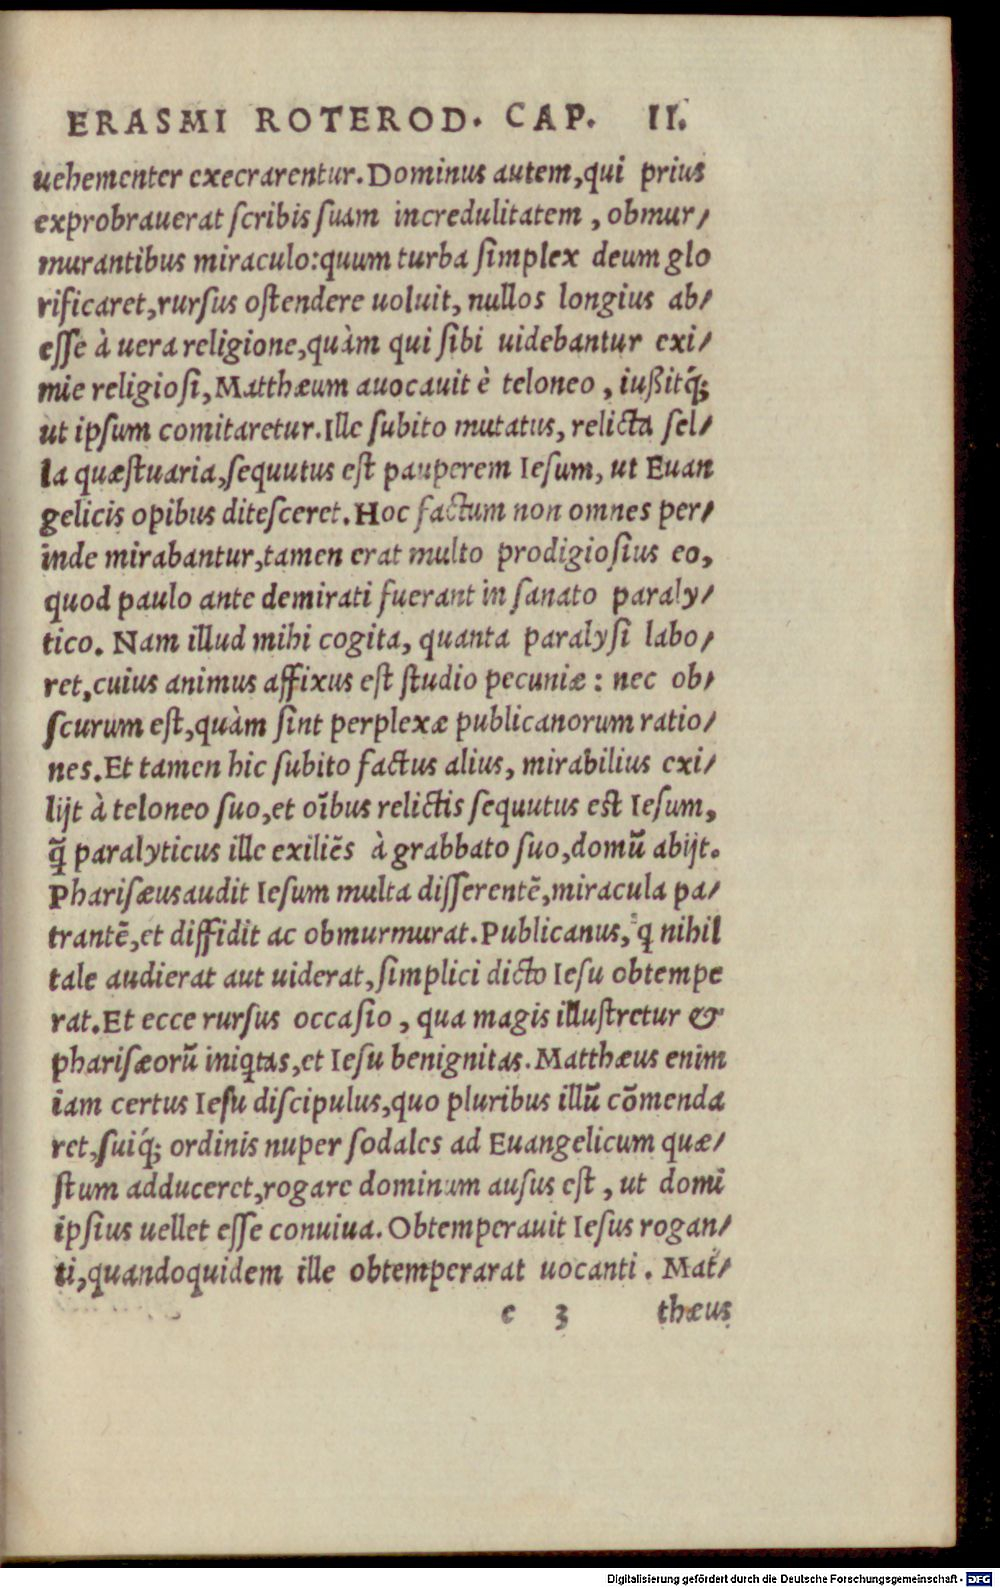 ERASMI ROTEROD. CAP. II.
uehementer execrarentur. Dominus autem, qui prius
exprobrauerat ſcribis ſuam incredulitatem, obmur/
murantibus miraculo: quum turba ſimplex deum glo
rificaret, rurſus oſtendere uoluit, nullos longius ab/
eſſe à uera religione, quàm qui ſibi uidebantur exi/
mie religioſi, Matthæum auocauit è teloneo, iußitq́;
ut ipſum comitaretur. Ille ſubito mutatus, relicta ſel/
la quæſtuaria, ſequutus eſt pauperem Ieſum, ut Euan
gelicis opibus diteſceret. Hoc factum non omnes per/
inde mirabantur, tamen erat multo prodigioſius eo,
quod paulo ante demirati fuerant in ſanato paraly/
tico. Nam illud mihi cogita, quanta paralyſi labo/
ret, cuius animus affixus eſt ſtudio pecuniæ: nec ob/
ſcurum eſt, quàm ſint perplexæ publicanorum ratio/
nes. Et tamen hic ſubito factus alius, mirabilius exi/
lijt à teloneo ſuo, et oı̃bus relictis ſequutus eſt Ieſum,
q̃ paralyticus ille exiliẽs à grabbato ſuo, domũ abijt.
Phariſæus audit Ieſum multa diſſerentẽ, miracula pa/
trantẽ, et diffidit ac obmurmurat. Publicanus, q nihil
tale audierat aut uiderat, ſimplici dicto Ieſu obtempe
rat. Et ecce rurſus occaſio, qua magis illuſtretur &
phariſæorũ iniqtas, et Ieſu benignitas. Matthæus enim
iam certus Ieſu diſcipulus, quo pluribus illũ cõmenda
ret, ſuiq́; ordinis nuper ſodales ad Euangelicum quæ/
ſtum adduceret, rogare dominum auſus eſt, ut domi
ipſius uellet eſſe conuiua. Obtemperauit Ieſus rogan/
ti, quandoquidem ille obtemperarat uocanti. Mat/
c 3 thæus
Digitalisierung gefördert durch die Deutsche Forschungsgemeinschaft - DFG